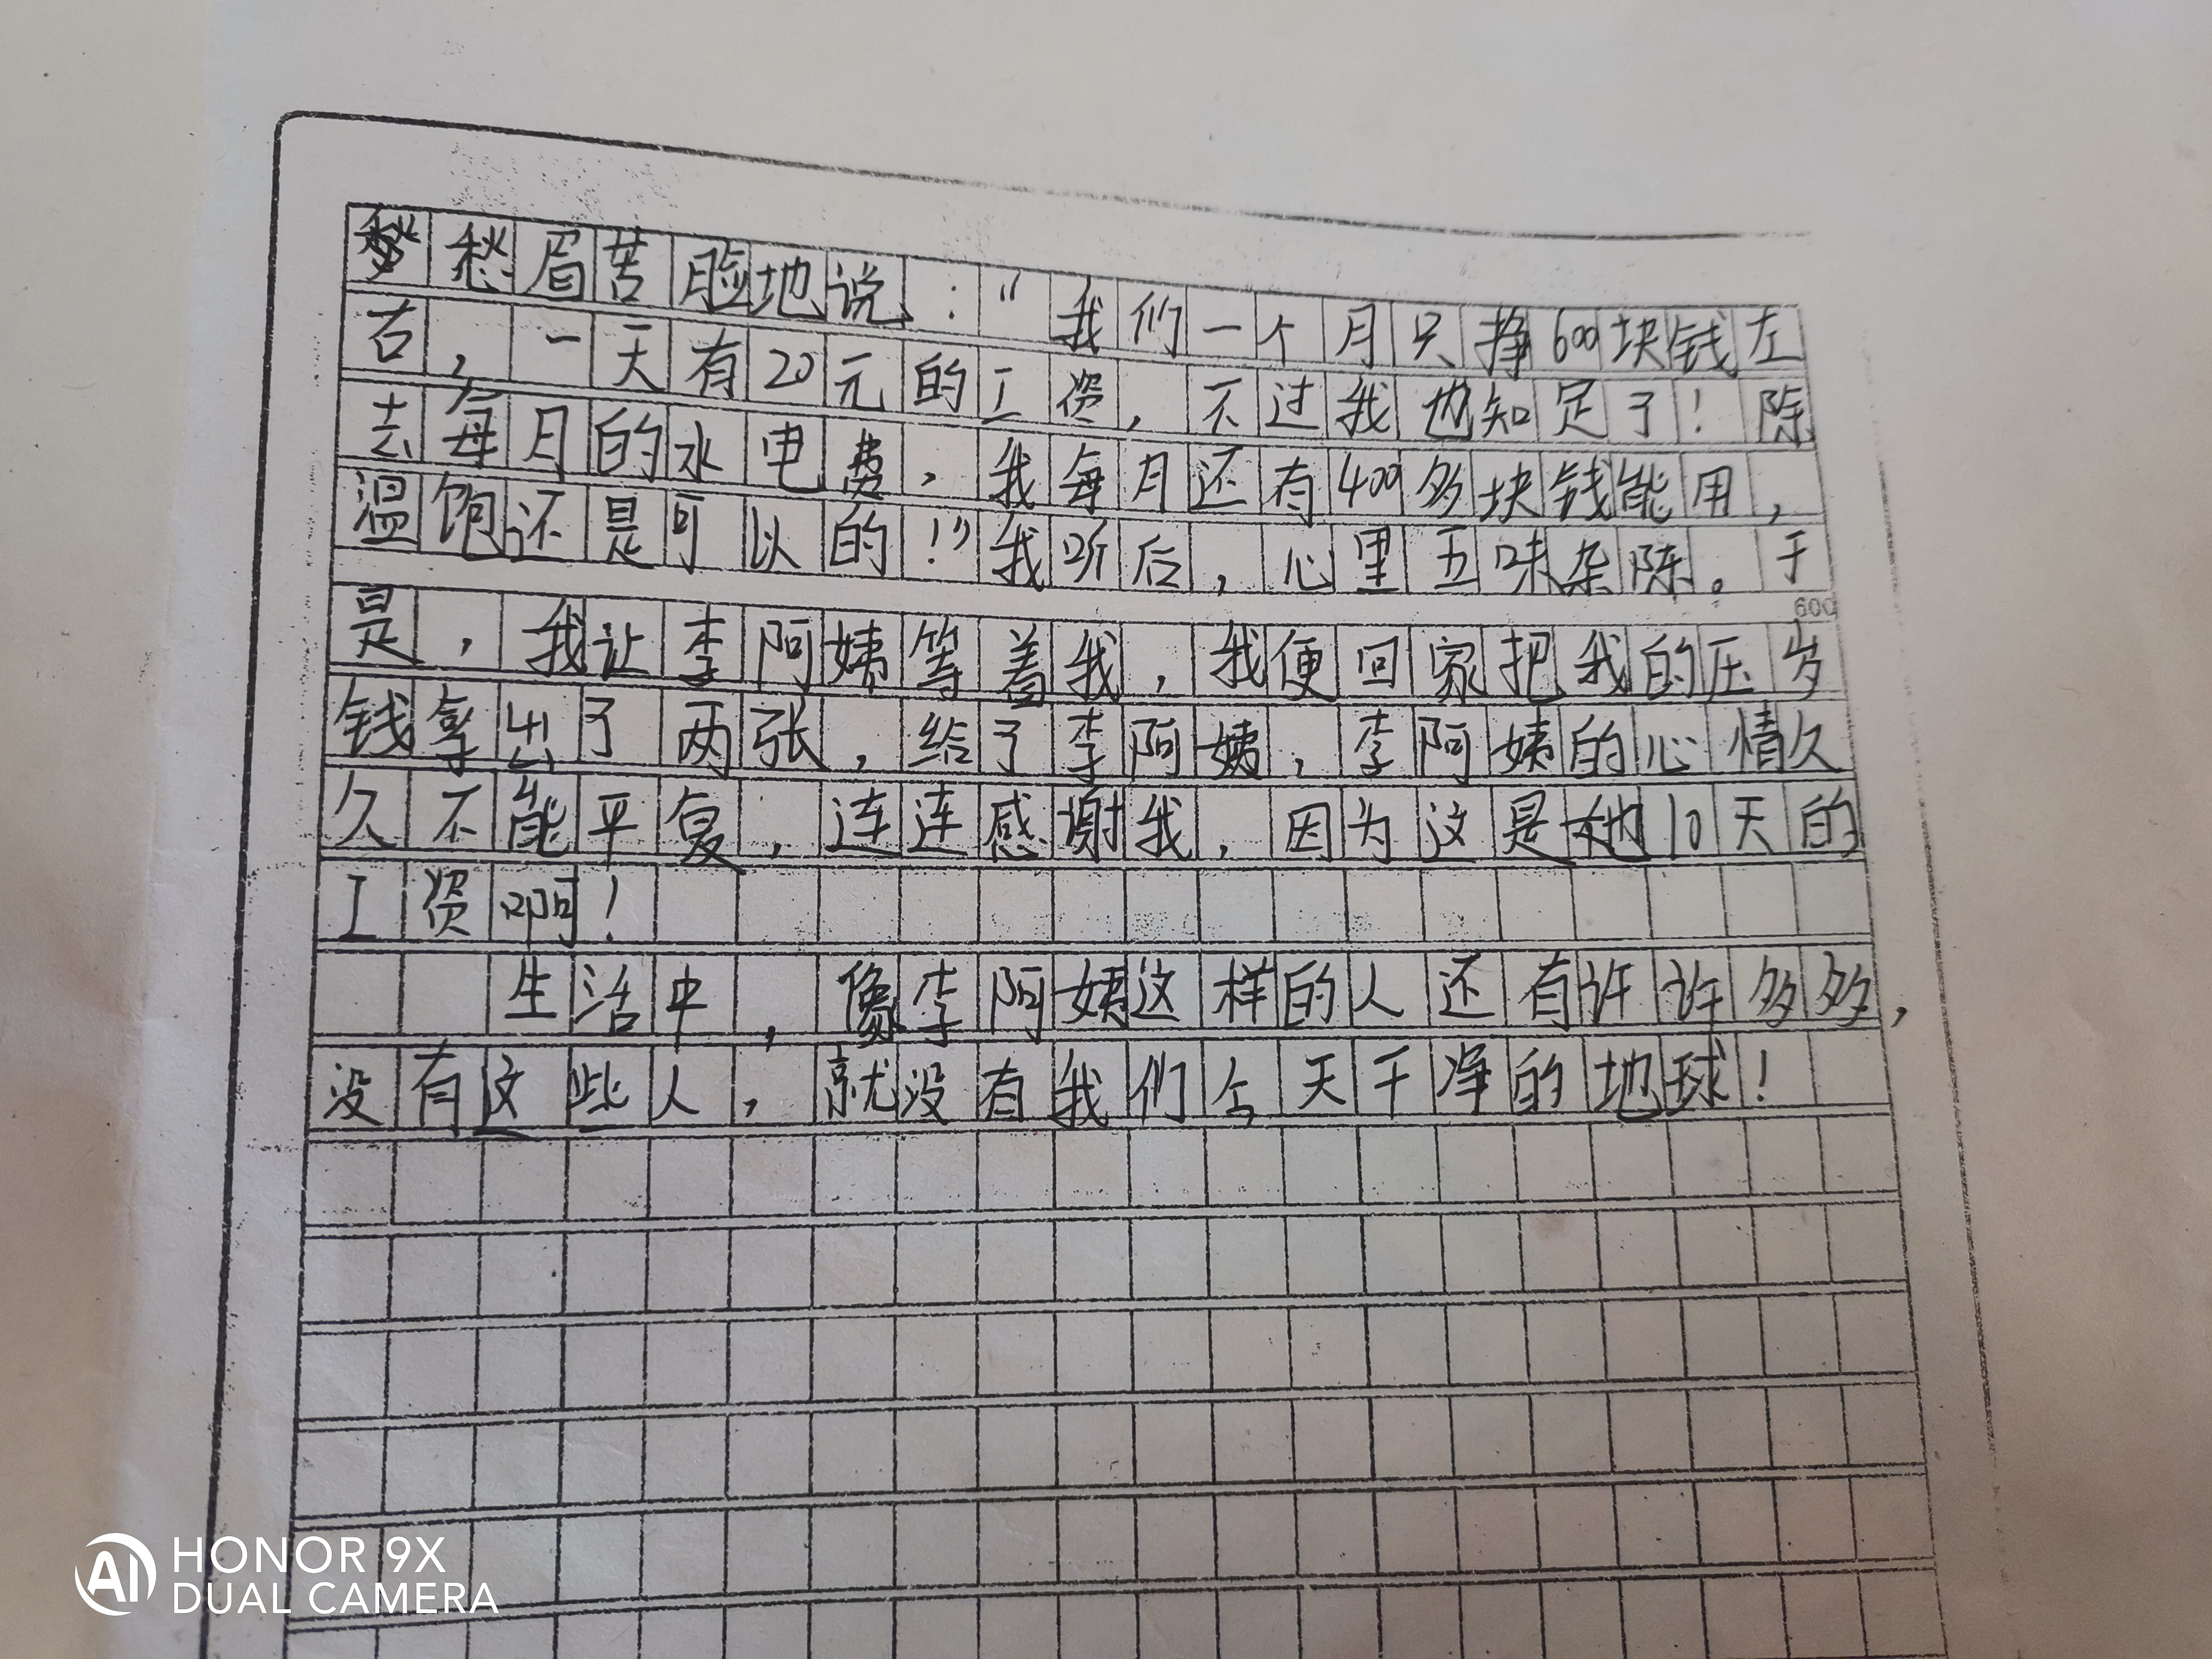 愁眉苦脸地说:“我们一个月只挣600块钱左
右,一天有20元的工资,不过我也知足了!除
去每月的水电费,我每月还有400多块钱能用,
温饱还是可以的!”我听后,心里五味杂陈。于
600
是,我让李阿姨等着我,我便回家把我的压岁
钱拿出了两张,给了李阿姨,李阿姨的心情久
久不能平复,连连感谢我,因为这是她10天的
工资啊!
生活中,像李阿姨这样的人还有许许多多,
没有这些人,就没有我们今天干净的地球!
AI HONOR 9X
DUAL CAMERA